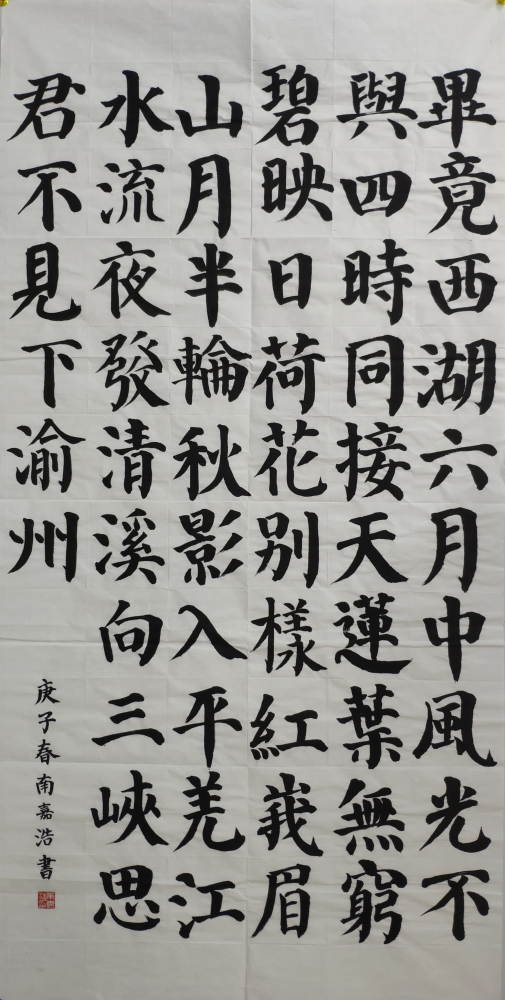 畢竟西湖六月中風光不
與四時同接天蓮葉無窮
碧映日荷花别樣紅峩眉
山月半輪秋影入平羌江
水流夜發清溪向三峽思
君不見下渝州
庚子春南嘉浩書